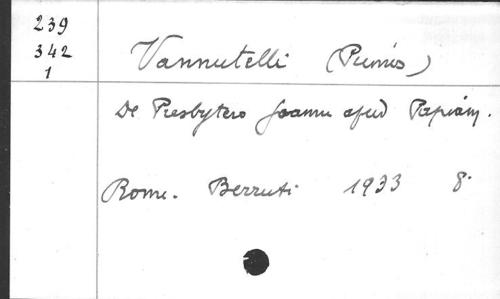 239
342
1
Vannutelli (Primus)
De Presbytero Joanne apud Papiam.
Rome. Berruti 1933 8°